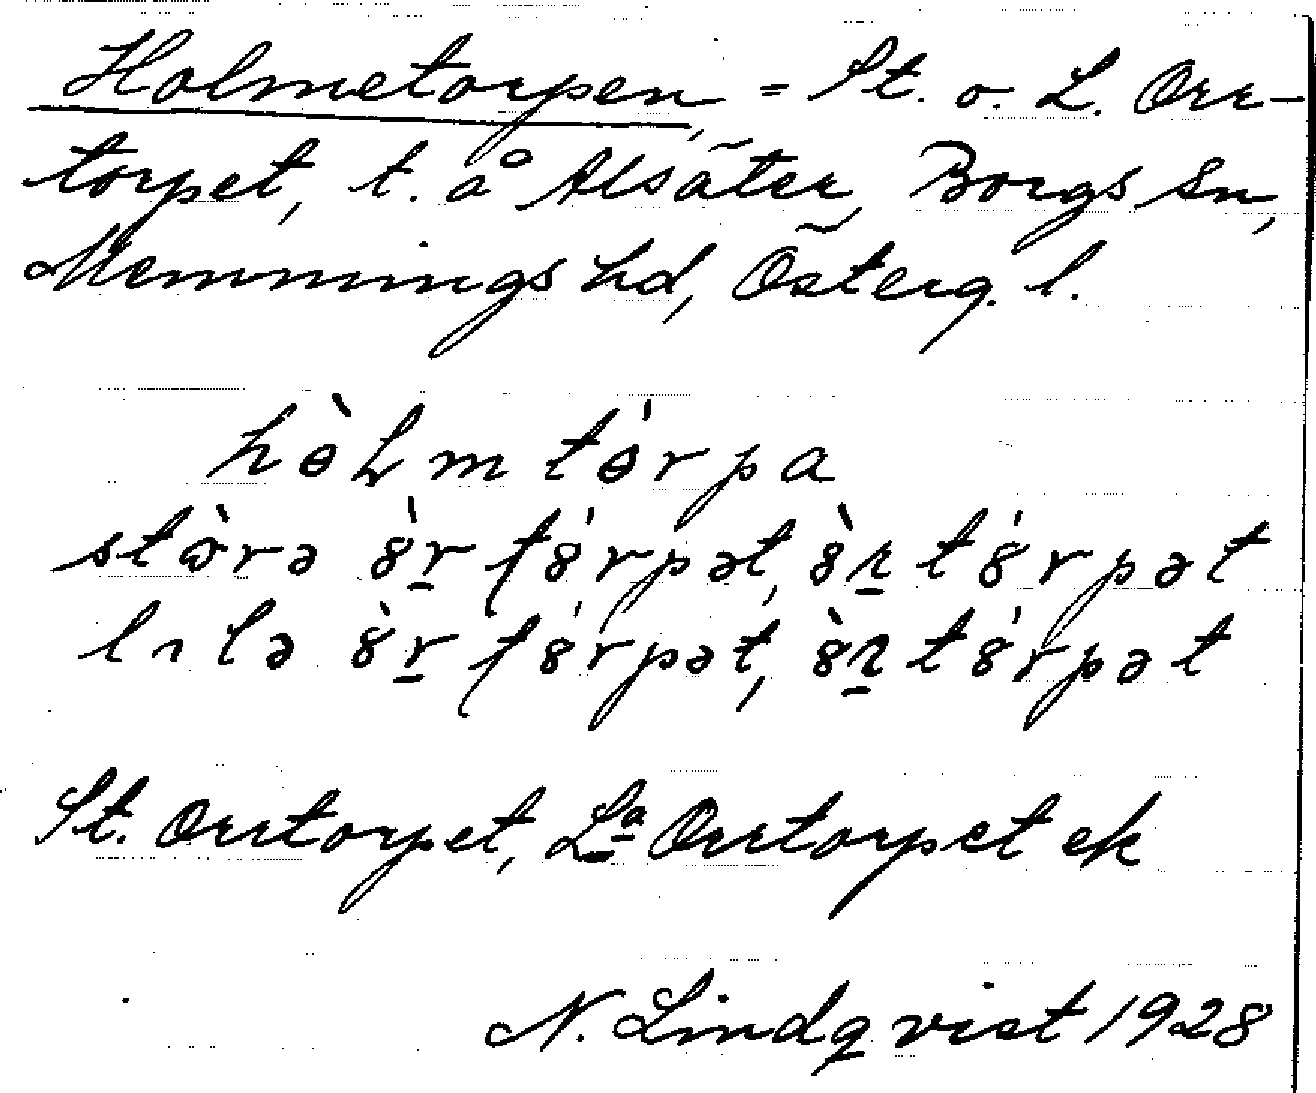 Holmetorpen, = St. o. L. Orr-
torpet, t. å Alsäter, Borgs sn,
Memmings hd, Österg. l.
hɵ̀Lm tɵ́rpa
stɷ̀rə 8̀r̠ t8́rpət, 8̀ɽ̠ t8́rpət
lılə 8̀r̠ t8́rpət, 8̀ɽ̠ t8́rpət
St. Orrtorpet, La Orrtorpet ek
N. Lindqvist 1928